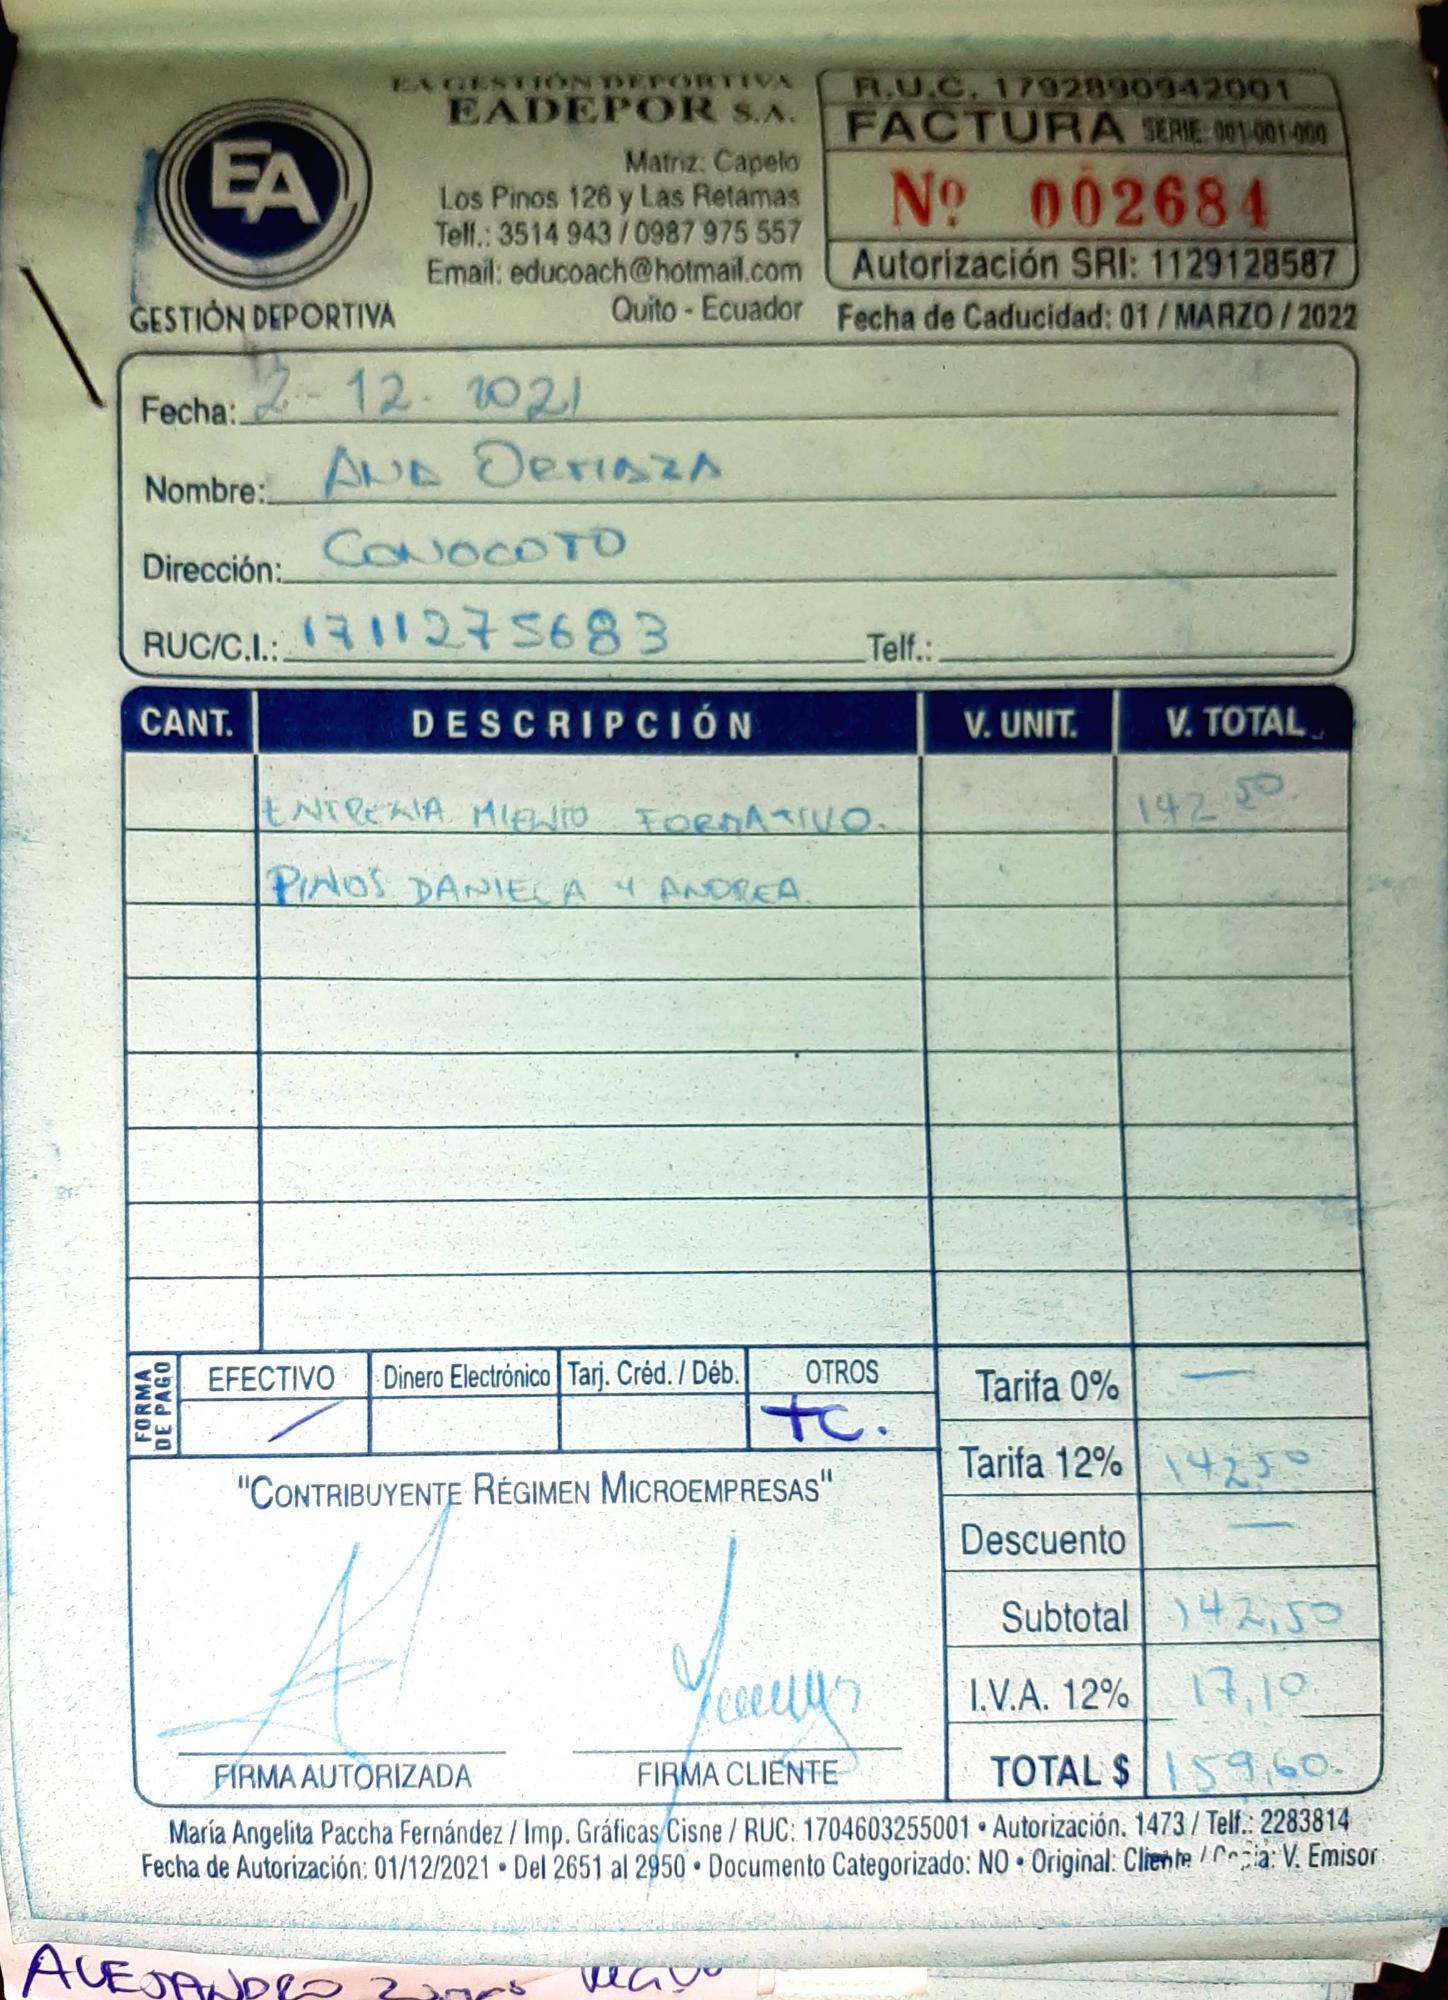 EA GESTIÓN DEPORTIVA
EADEPOR S.A.
Matriz: Capelo
Los Pinos 126 y Las Retamas
Telf.: 3514 943 / 0987 975 557
Email: educoach@hotmail.com
Quito - Ecuador
EA
GESTIÓN DEPORTIVA
R.U.C. 1792890942001
FACTURA SERIE: 001-001-000
Nº 002684
Autorización SRI: 1129128587
Fecha de Caducidad: 01 / MARZO / 2022
Fecha: 2 - 12. 2021
Nombre: ANA
Dirección: CONOCOTO
RUC/C.I.: 1711275683 Telf.:
CANT. DESCRIPCIÓN V. UNIT. V. TOTAL
ENTRENAMIENTO FORMATIVO. 142 50
PINOS DANIELA Y ANDREA.
FORMA DE PAGO
EFECTIVO Dinero Electrónico Tarj. Créd. / Déb. OTROS
TC.
Tarifa 0% —
Tarifa 12% 142,50
Descuento —
Subtotal 142,50
I.V.A. 12% 17,10
TOTAL $ 159,60.
"CONTRIBUYENTE RÉGIMEN MICROEMPRESAS"
FIRMA AUTORIZADA FIRMA CLIENTE
María Angelita Paccha Fernández / Imp. Gráficas Cisne / RUC: 1704603255001 • Autorización. 1473 / Telf.: 2283814
Fecha de Autorización: 01/12/2021 • Del 2651 al 2950 • Documento Categorizado: NO • Original: Cliente / Copia: V. Emisor
ALEJANDRO